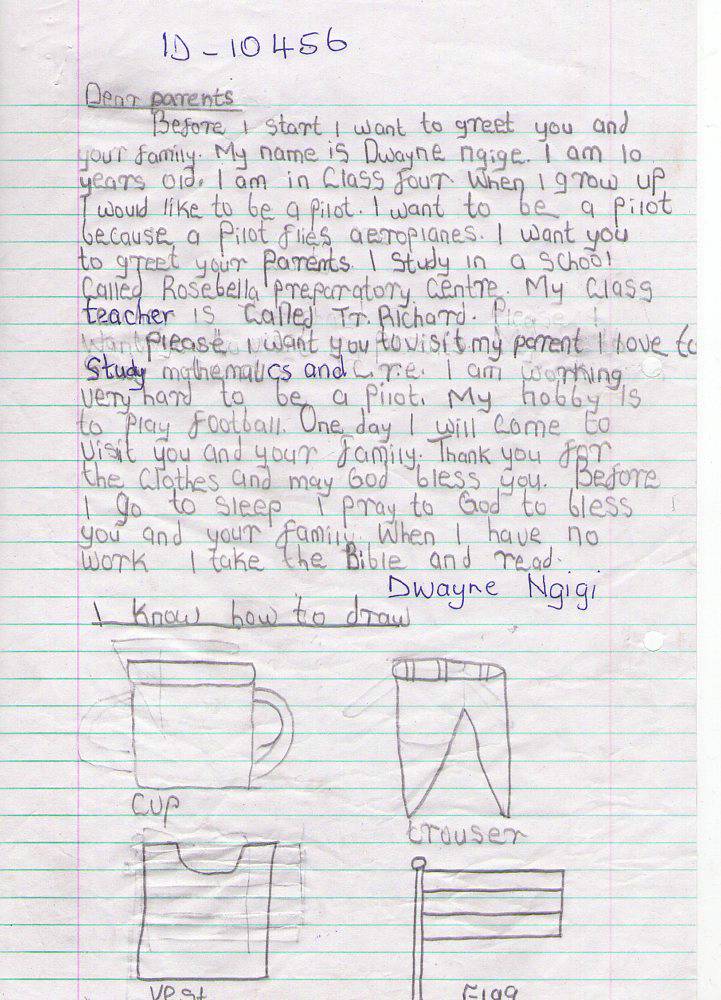 ID - 10456
Dear parents
Before I start I want to greet you and
your family. My name is Dwayne ngige. I am 10
years old. I am in Class four When I grow up
I would like to be a pilot. I want to be a pilot
because a pilot flies aeroplanes. I want you
to greet your parents. I study in a school
Called Rosebella preparatory Centre. My Class
teacher is called Tr. Richard.
please I want you to visit my parent I love to
Study mathematics and C.r.e. I am working
very hard to be a pilot. My hobby is
to play football. One day I will come to
visit you and your family. Thank you for
the clothes and may God bless you. Before
I go to sleep I pray to God to bless
you and your family. When I have no
work I take the Bible and read.
Dwayne Ngigi
I know how to draw
Cup
trouser
vest
Flag